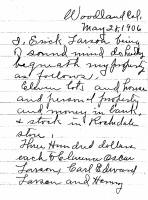 Woodland Cal.
May 28, 1906
I, Erick Larson being
of sound mind do hereby
bequeath my property
as follows.
Eleven lots and house
and personal property
and money in bank,
& stock in Rochdale
store,
Three Hundred dollars
each to Clarence Oscar
Larson, Carl Edward
Larson and Henry